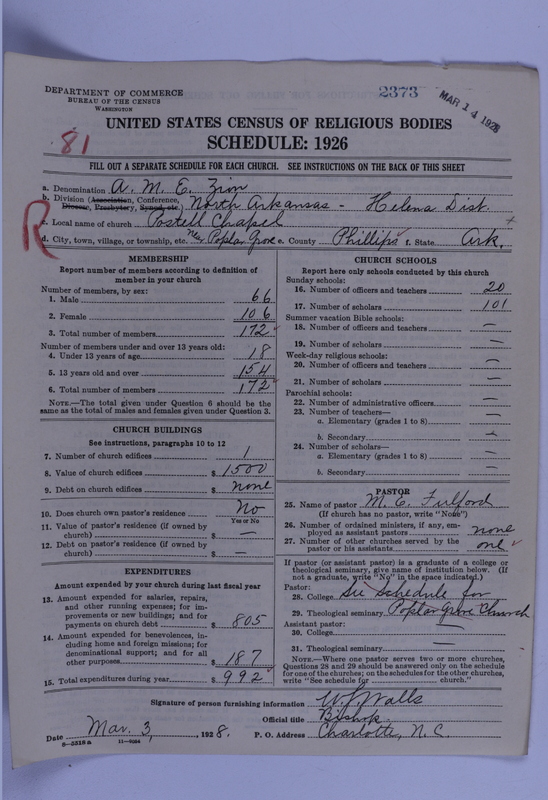 DEPARTMENT OF COMMERCE
BUREAU OF THE CENSUS
WASHINGTON
2373
MAR 14 1928
81
UNITED STATES CENSUS OF RELIGIOUS BODIES
SCHEDULE: 1926
FILL OUT A SEPARATE SCHEDULE FOR EACH CHURCH. SEE INSTRUCTIONS ON THE BACK OF THIS SHEET
R
a. Denomination A. M. E. Zion
b. Division (Association, Conference, Diocese, Presbytery, Synod, etc.) North Arkansas - Helena Dist.
c. Local name of church Postell Chapel
d. City, town, village, or township, etc. Near Poplar Grove e. County Phillips f. State Ark.
MEMBERSHIP
Report number of members according to definition of
member in your church
Number of members, by sex:
1. Male 66
2. Female 106
3. Total number of members 172
Number of members under and over 13 years old:
4. Under 13 years of age 18
5. 13 years old and over 154
6. Total number of members 172
NOTE.—The total given under Question 6 should be
the same as the total of males and females given under Question 3.
CHURCH BUILDINGS
See instructions, paragraphs 10 to 12
7. Number of church edifices 1
8. Value of church edifices $1500
9. Debt on church edifices $ none
10. Does church own pastor's residence No
Yes or No
11. Value of pastor's residence (if owned by
church) $ —
12. Debt on pastor's residence (if owned by
church) $ —
EXPENDITURES
Amount expended by your church during last fiscal year
13. Amount expended for salaries, repairs,
and other running expenses; for im-
provements or new buildings; and for
payments on church debt $ 805
14. Amount expended for benevolences, in-
cluding home and foreign missions; for
denominational support; and for all
other purposes $ 187
15. Total expenditures during year $ 992
CHURCH SCHOOLS
Report here only schools conducted by this church
Sunday schools:
16. Number of officers and teachers 20
17. Number of scholars 101
Summer vacation Bible schools:
18. Number of officers and teachers —
19. Number of scholars —
Week-day religious schools:
20. Number of officers and teachers —
21. Number of scholars —
Parochial schools:
22. Number of administrative officers —
23. Number of teachers—
a. Elementary (grades 1 to 8) —
b. Secondary —
24. Number of scholars—
a. Elementary (grades 1 to 8) —
b. Secondary —
PASTOR
25. Name of pastor M. E. Fulford
(If church has no pastor, write "None")
26. Number of ordained ministers, if any, em-
ployed as assistant pastors none
27. Number of other churches served by the
pastor or his assistants one
If pastor (or assistant pastor) is a graduate of a college or
theological seminary, give name of institution below. (If
not a graduate, write "No" in the space indicated.)
Pastor:
28. College See Schedule for
29. Theological seminary Poplar Grove Church
Assistant pastor:
30. College —
31. Theological seminary —
NOTE.—Where one pastor serves two or more churches,
Questions 28 and 29 should be answered only on the schedule
for one of the churches; on the schedules for the other churches,
write "See schedule for church."
Signature of person furnishing information W. J. Walls
Official title Bishop
Date Mar. 3, 1928. P. O. Address Charlotte, N. C.
8-3518a 11-9034